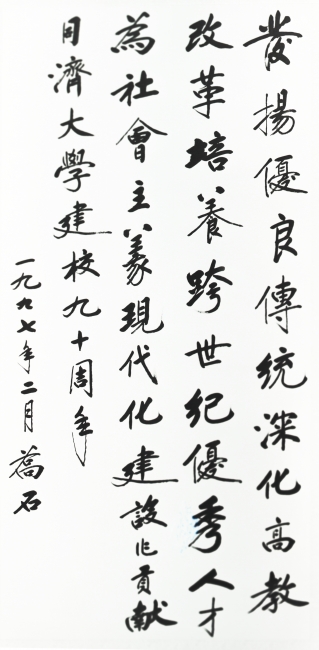 發揚優良傳統深化高教
改革培養跨世紀優秀人才
為社會主義現代化建設作貢献
同濟大學建校九十周年
一九九七年二月 喬石